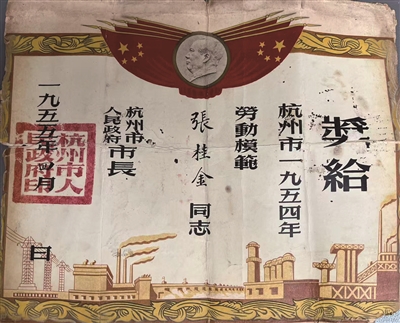 奬給
杭州市一九五四年
勞動模範
張桂金同志
杭州市
人民政府市長
一九五五年四月 日
杭州市人
民政府印